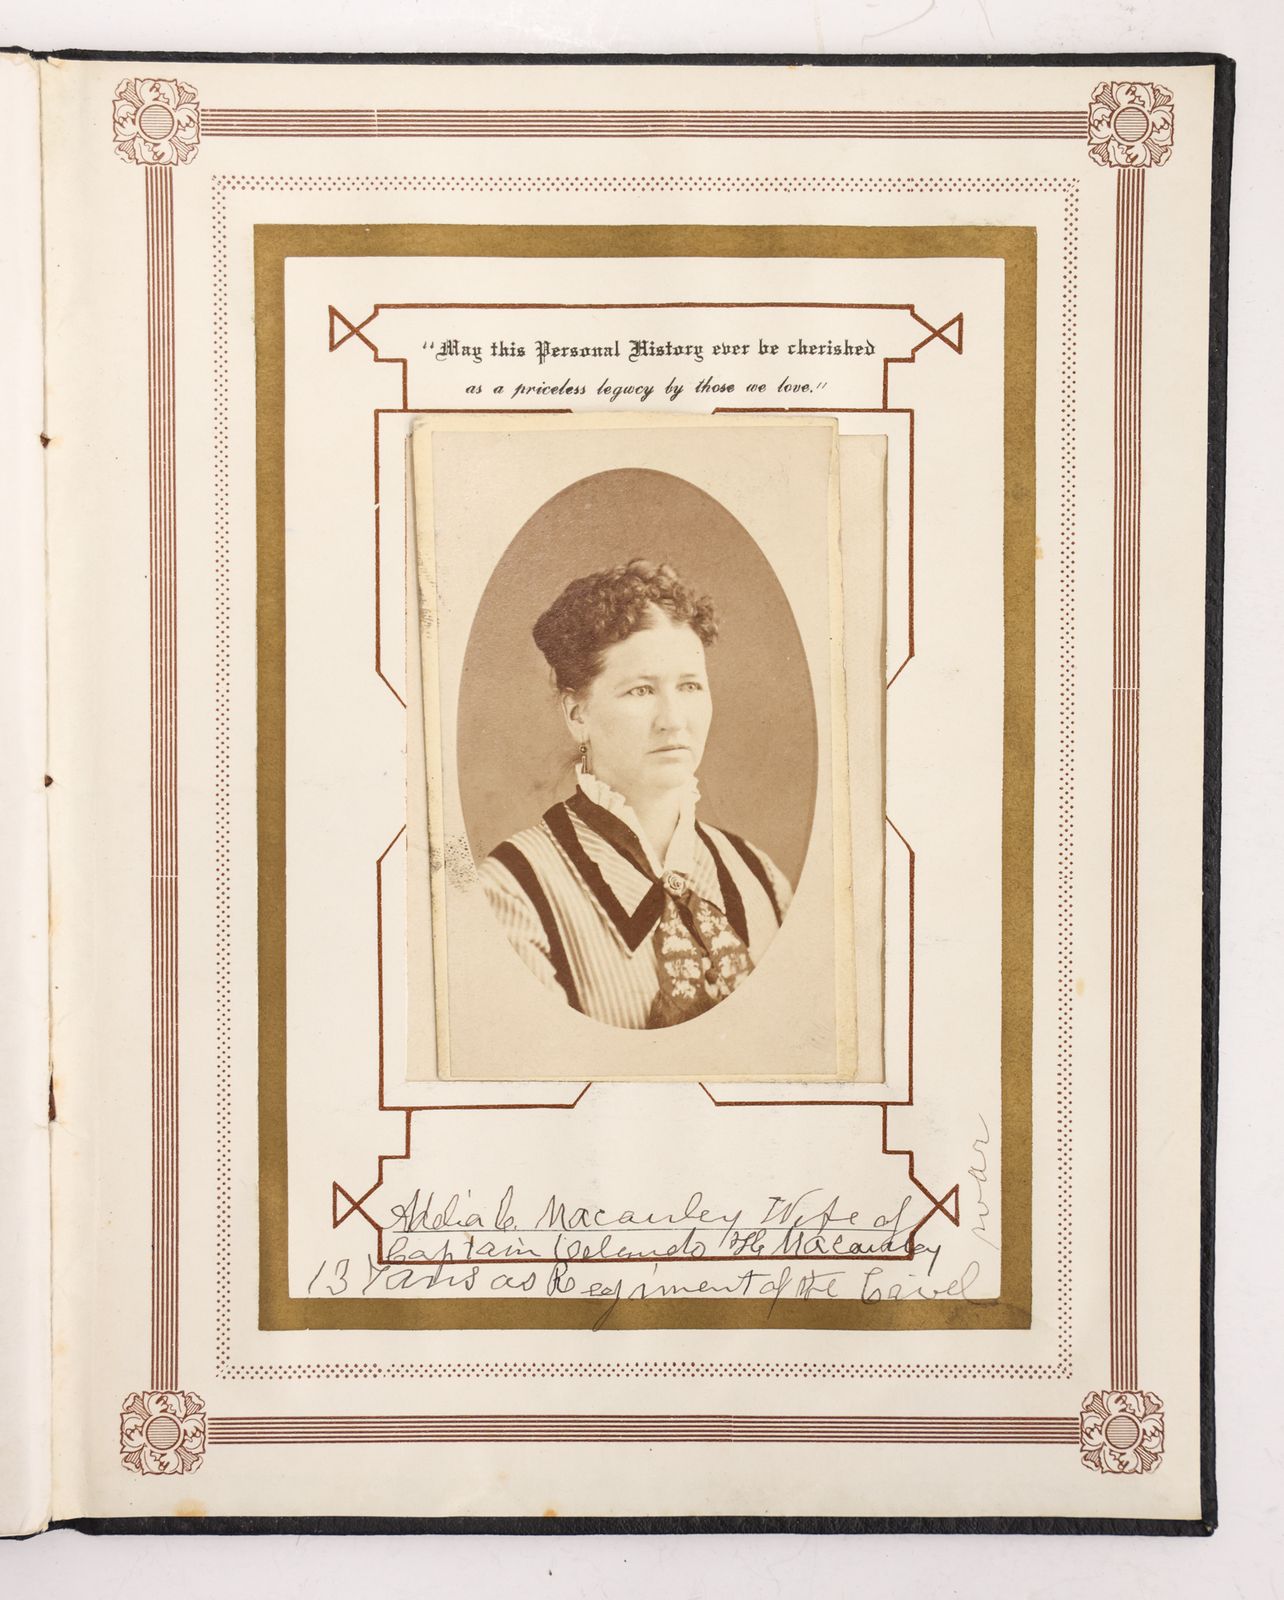 "May this Personal History ever be cherished
as a priceless legacy by those we love."
Adelia C. Macauley Wife of
Captain Orlando H. Macauley
13 Regiment of the Civel
war